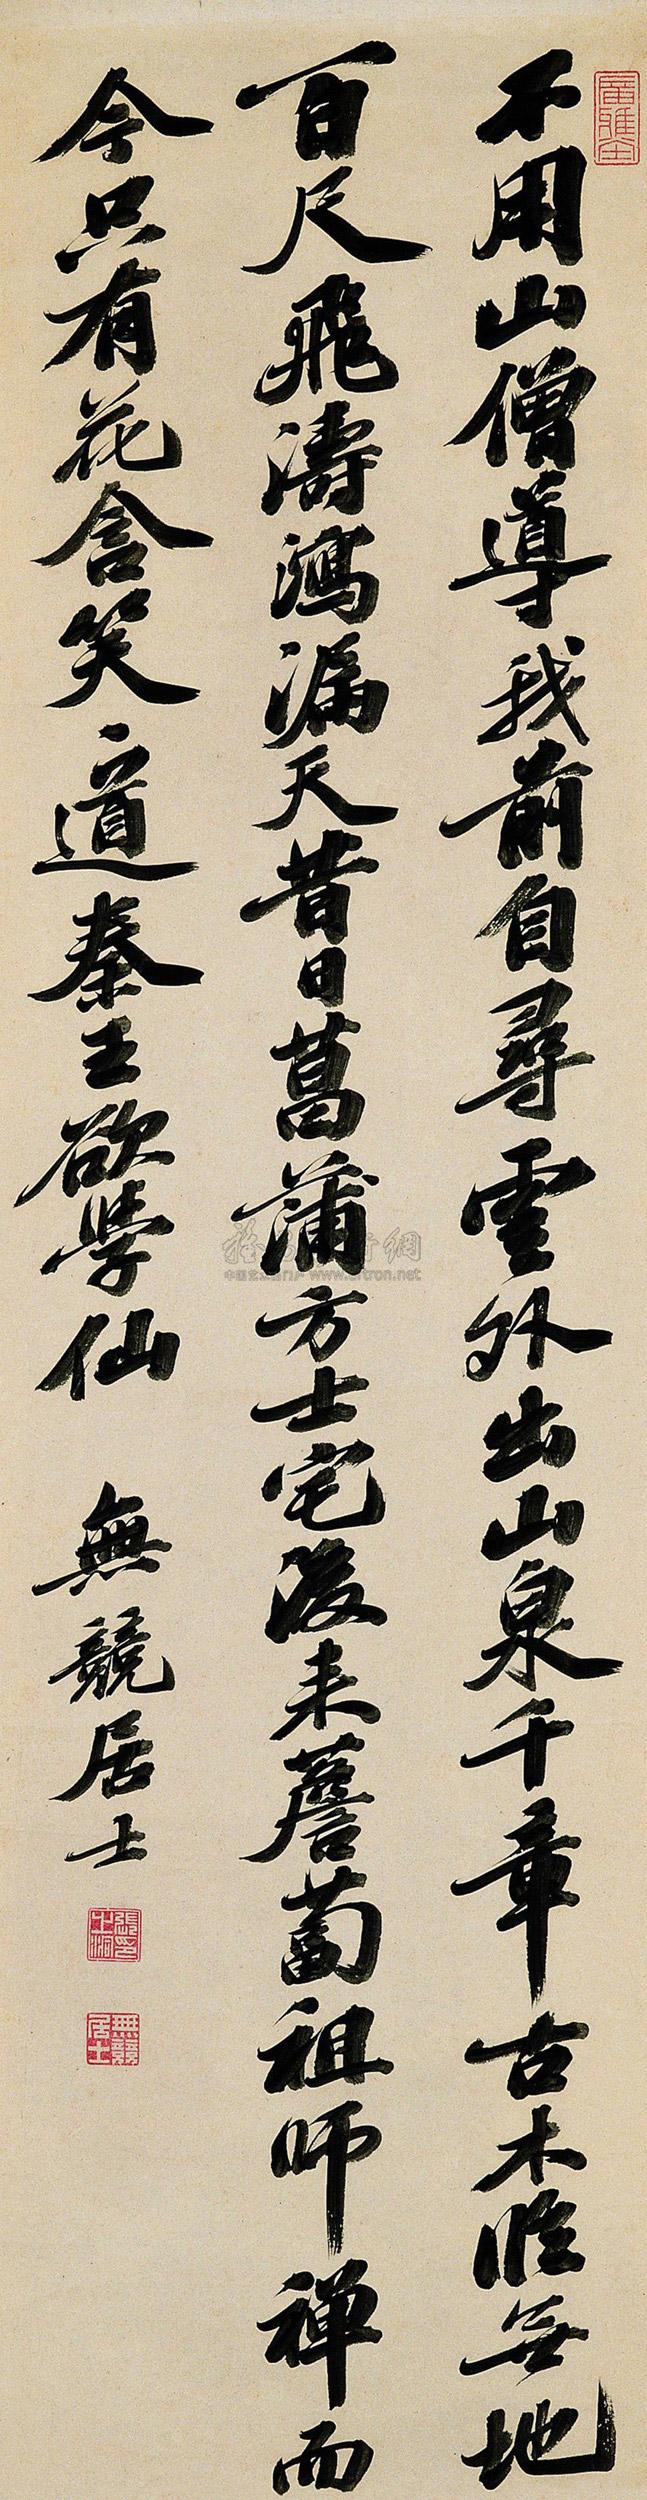 不用山僧導我前自尋雲外出山泉千章古木臨無地
百尺飛濤瀉漏天昔日菖蒲方士宅後來薝蔔祖師禪而
今只有花含笑笑道秦王欲學仙 無競居士
張之洞印
無競居士
www.artron.net